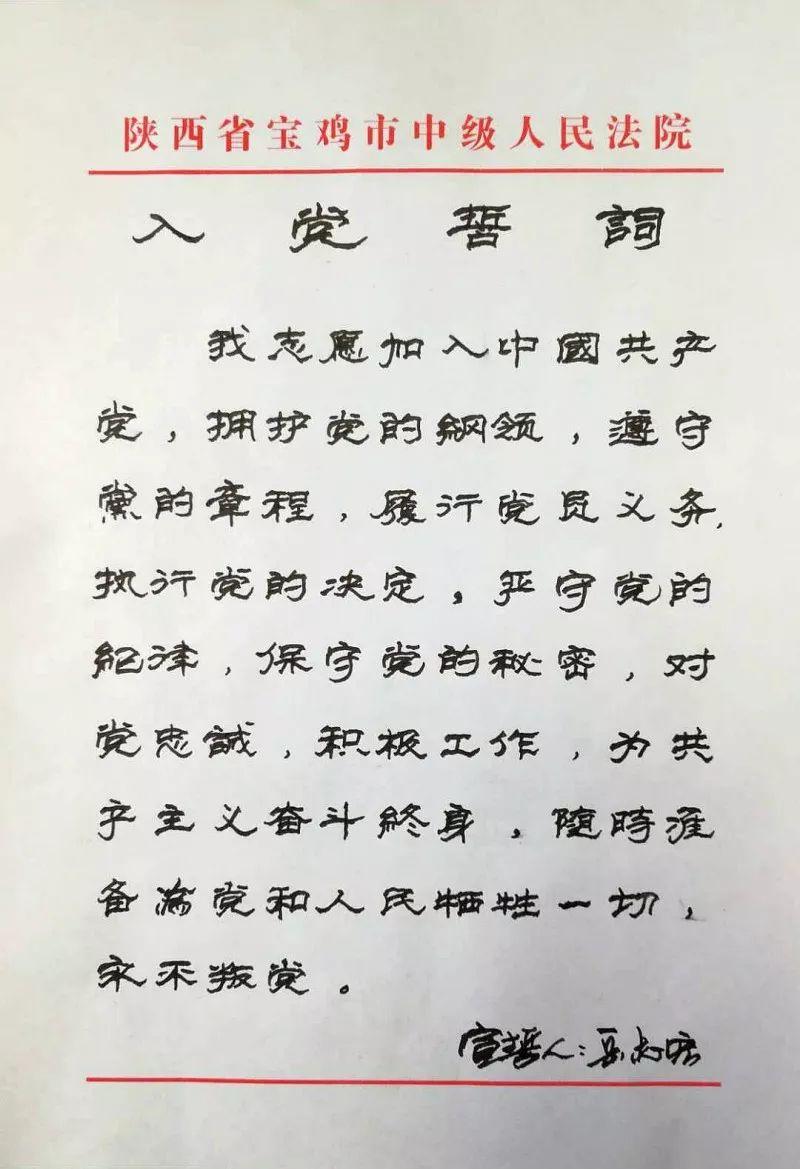 陕西省宝鸡市中级人民法院
入党誓詞
我志愿加入中國共产
党，拥护党的綱领，遵守
黨的章程，履行党员义务，
执行党的决定。严守党的
紀律，保守党的秘密，对
党忠誠，积极工作，为共
产主义奋斗終身，随時准
备為党和人民牺牲一切，
永不叛党。
宣誓人：